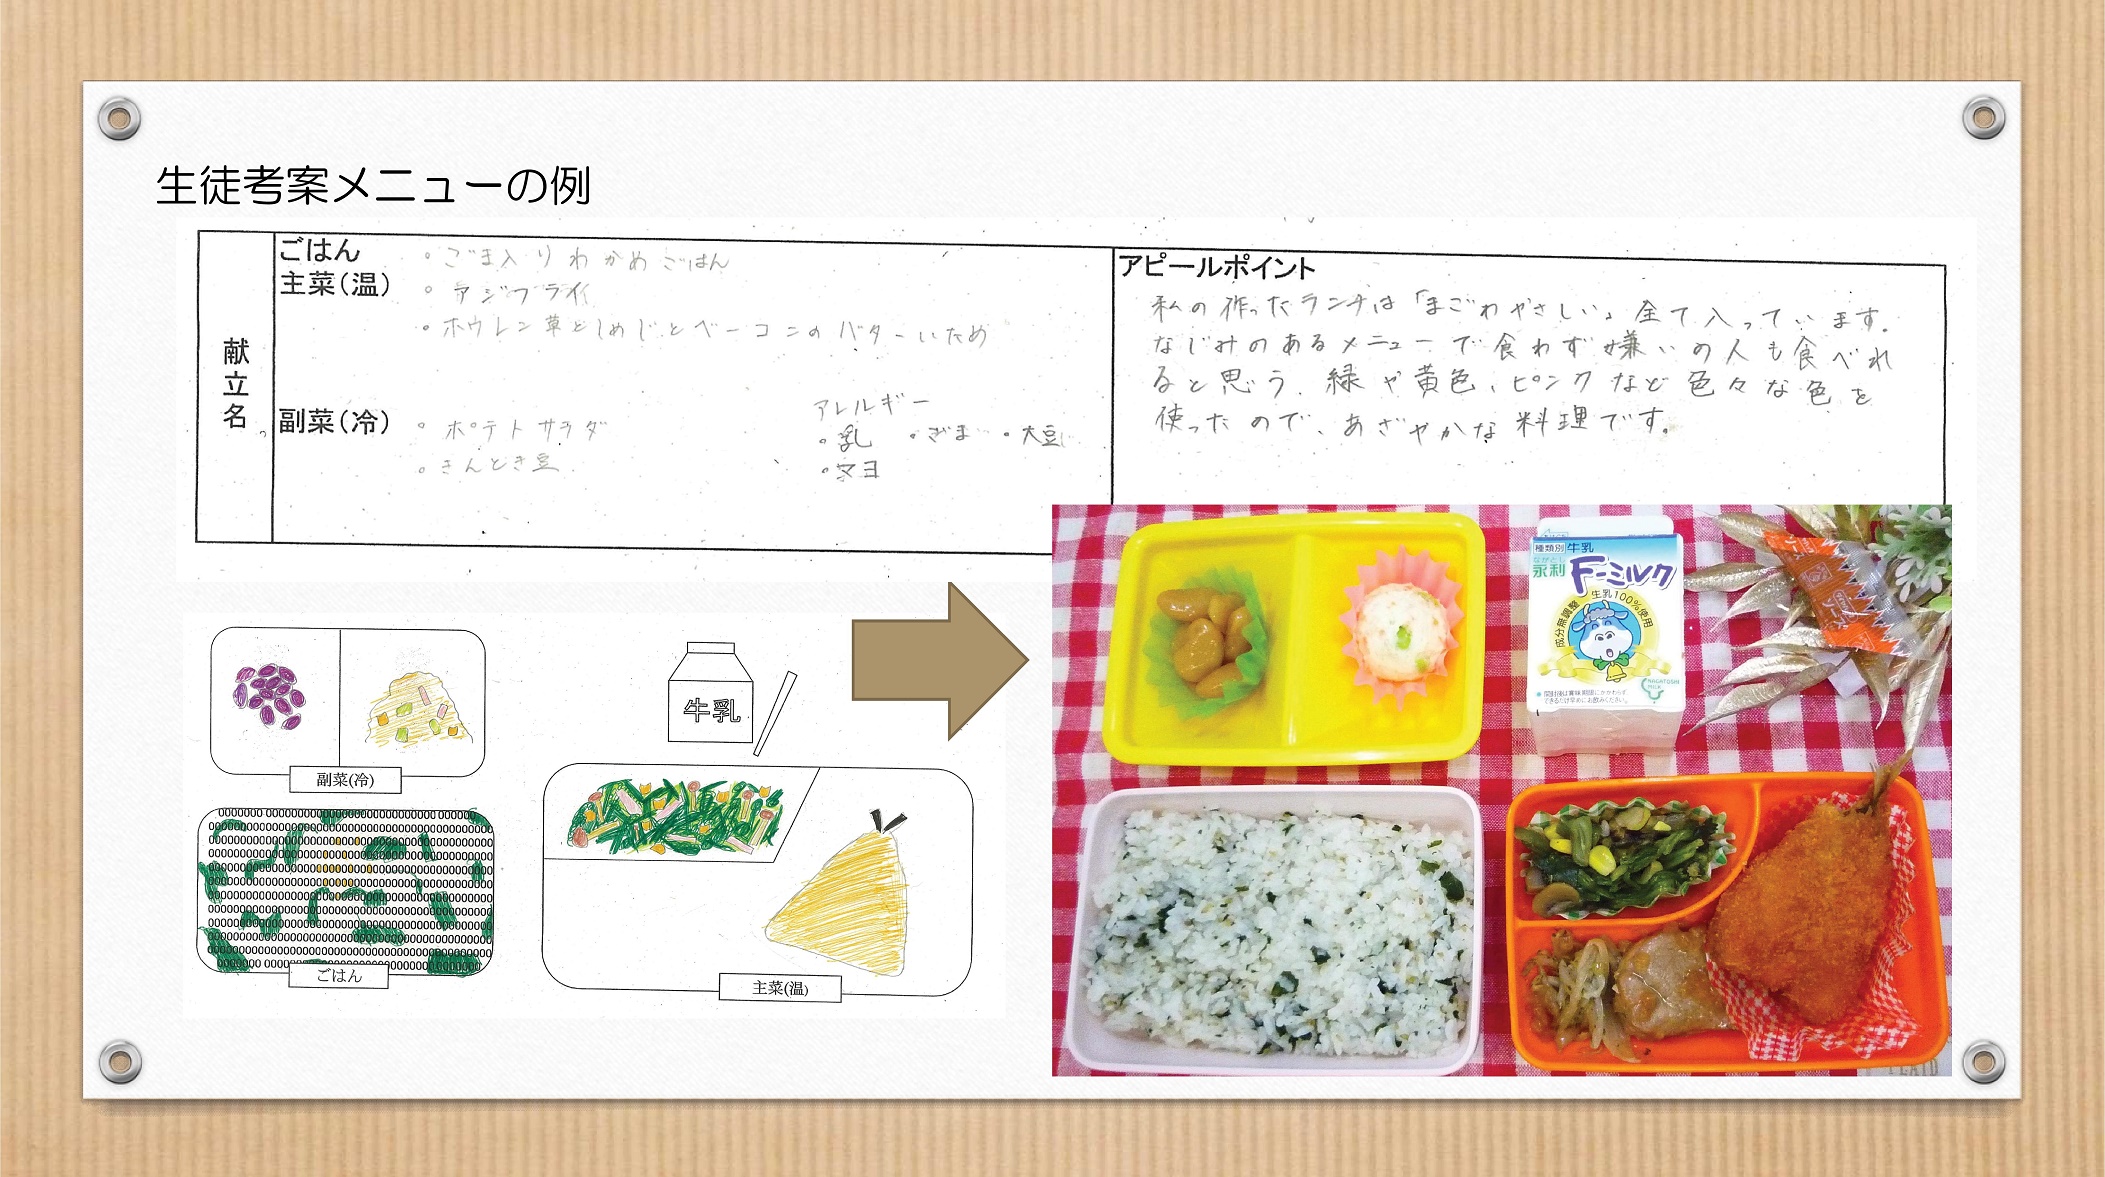 生徒考案メニューの例
献立名
ごはん
・ごま入りわかめごはん
主菜(温)
・アジフライ
・ホウレン草としめじとベーコンのバターいため
副菜(冷)
・ポテトサラダ
・きんとき豆
アレルギー
・乳 ・ごま ・大豆
・マヨ
アピールポイント
私の作ったランチは「まごわやさしい」全て入っています。
なじみのあるメニューで食わず嫌いの人も食べれ
ると思う。緑や黄色、ピンクなど色々な色を
使ったので、あざやかな料理です。
副菜(冷)
牛乳
ごはん
主菜(温)
種類別 牛乳
ながとし
永利 F-ミルク
成分無調整 生乳100%使用
開封後は賞味期限にかかわらず
できるだけ早めにお飲みください。
NAGATOSHI
MILK
ソース